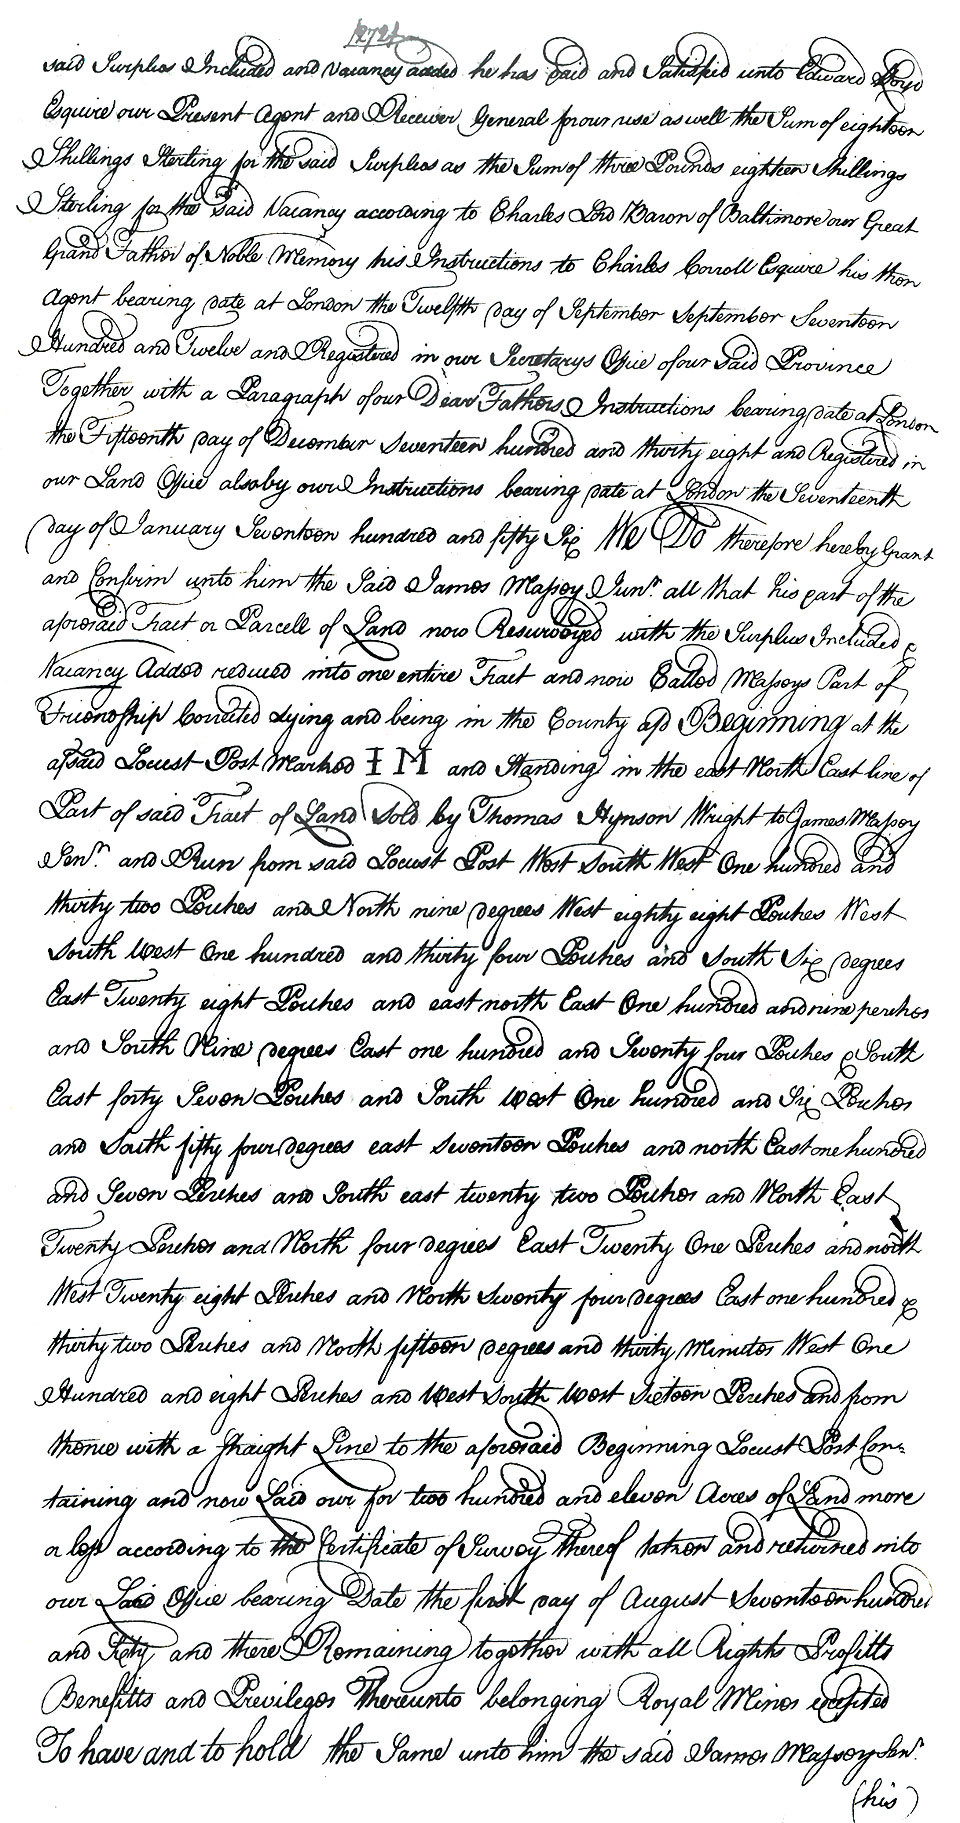 [272]
said Surplus Included and vacancy added he has paid and Satisfied unto Edward Lloyd
Esquire our Present Agent and Receiver General for our use as well the Sum of eighteen
Shillings Sterling for the said Surplus as the Sum of three Pounds eighteen shillings
Sterling for the said Vacancy according to Charles Lord Baron of Baltimore our Great
Grand Father of Noble Memory his Instructions to Charles Carroll Esquire his then
Agent bearing date at London the Twelfth day of September September Seventeen
Hundred and Twelve and Registered in our Secretarys Office of our said Province
Together with a Paragraph of our Dear Fathers Instructions bearing date at London
the Fifteenth day of December Seventeen hundred and thirty eight and Registered in
our Land Office also by our Instructions bearing date at London the Seventeenth
day of January Seventeen hundred and fifty Six We Do therefore hereby Grant
and Confirm unto him the Said James Massey Junr. all that his part of the
aforesaid Tract or Parcell of Land now Resurveyed with the Surplus Included &
Vacancy Added reduced into one entire Tract and now Called Masseys Part of
Friendship Lying and being in the County afd Beginning at the
afsaid Locust Post Marked I M and Standing in the east North East line of
Part of said Tract of Land Sold by Thomas Hynson Wright to James Massey
Senr. and Run from said Locust Post West South West One hundred and
thirty two Perches and North nine degrees West eighty eight Perches West
South West One hundred and thirty four Perches and South Six degrees
East Twenty eight Perches and east north East One hundred and nine perches
and South Nine degrees East one hundred and Seventy four Perches & South
East forty Seven Perches and South West One hundred and Six Perches
and South fifty four degrees east Seventeen Perches and north East one hundred
and Seven Perches and South east twenty two Perches and North East
Twenty Perches and North four degrees East Twenty One Perches and north
West Twenty eight Perches and North Seventy four degrees East one hundred &
thirty two Perches and North fifteen degrees and thirty Minutes West One
Hundred and eight Perches and West South West Sixteen Perches and from
thence with a straight Line to the aforesaid Beginning Locust Post Con=
taining and now Laid our for two hundred and eleven Acres of Land more
or less according to the Certificate of Survey thereof taken and returned into
our Land Office bearing Date the first day of August Seventeen hundred
and Sixty and there Remaining together with all Rights Profitts
Benefitts and Previleges Thereunto belonging Royal Mines excepted
To have and to hold the Same unto him the said James Massey Senr.
(his)